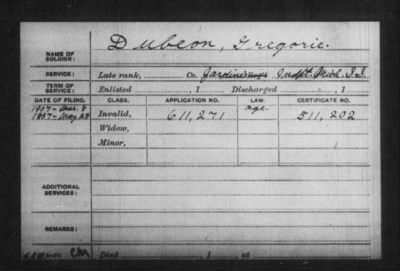 NAME OF SOLDIER: Dubeon, Gregorie.
SERVICE: Late rank, Co. Jardine Indpt. Mich. S.S.
TERM OF SERVICE: Enlisted , 1 Discharged , 1
DATE OF FILING. CLASS. APPLICATION NO. LAW. CERTIFICATE NO.
1887-May 28 Invalid, 611,271 age. 511,202
Widow,
Minor,
ADDITIONAL SERVICES:
REMARKS:
Died , 1 at